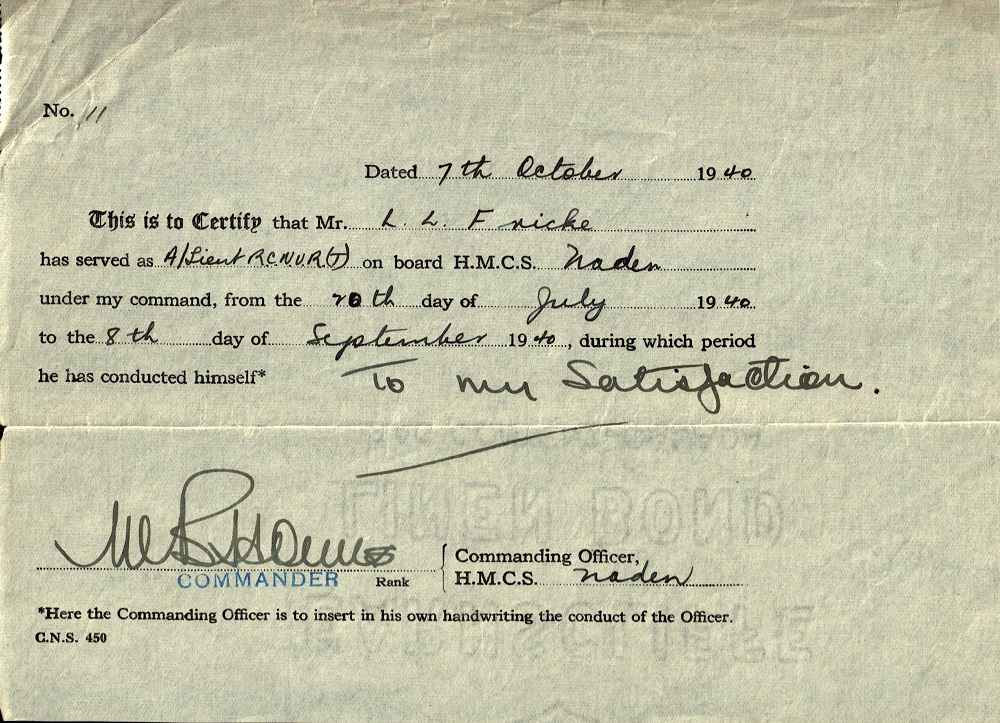 No. 11
Dated 7th October 1940
This is to Certify that Mr. L. L. Fricke
has served as A/Lieut RCNVR(T) on board H.M.C.S. Naden
under my command, from the 20th day of July 1940
to the 8th day of September 1940, during which period
he has conducted himself* To my Satisfaction.
COMMANDER Rank
Commanding Officer,
H.M.C.S. Naden
*Here the Commanding Officer is to insert in his own handwriting the conduct of the Officer.
C.N.S. 450
LINEN BOND